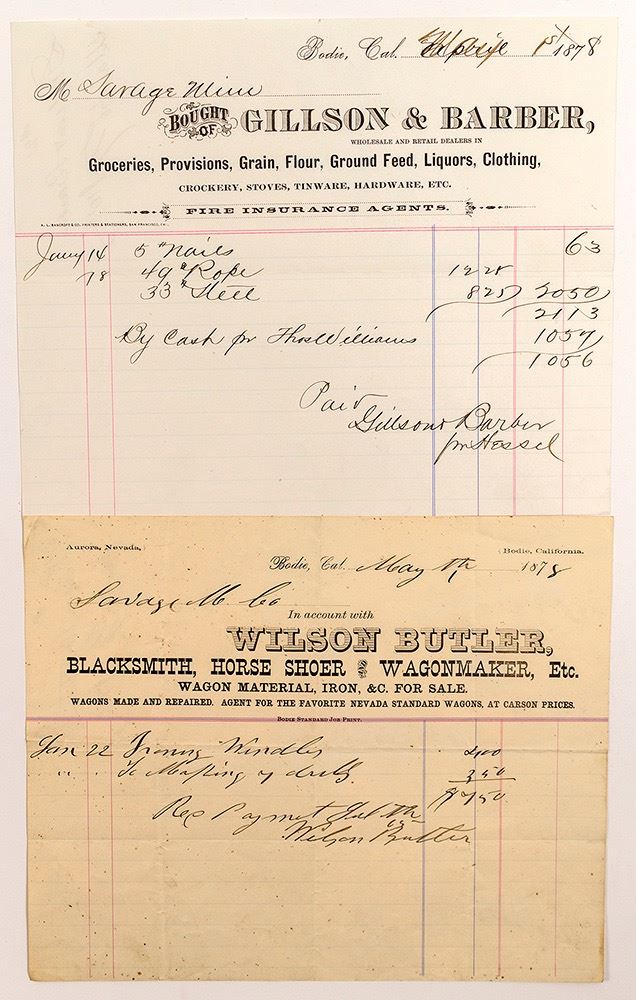 Bodie, Cal. 1st 1878
M Savage Mine
BOUGHT OF GILLSON & BARBER,
WHOLESALE AND RETAIL DEALERS IN
Groceries, Provisions, Grain, Flour, Ground Feed, Liquors, Clothing,
CROCKERY, STOVES, TINWARE, HARDWARE, ETC.
FIRE INSURANCE AGENTS.
A. L. BANCROFT & CO. PRINTERS & STATIONERS, SAN FRANCISCO, CAL.
Jany 14 5 # Nails 63
18 49 # Rope 1225
33 # Steel 825 2050
2113
By Cash pr Thos Williams 1057
1056
Paid
Gillson & Barber
pr Hessel
Aurora, Nevada, Bodie, California.
Bodie, Cal. May 1878
Savage M. Co
In account with
WILSON BUTLER,
BLACKSMITH, HORSE SHOER & WAGONMAKER, Etc.
WAGON MATERIAL, IRON, &C. FOR SALE.
WAGONS MADE AND REPAIRED. AGENT FOR THE FAVORITE NEVADA STANDARD WAGONS, AT CARSON PRICES.
BODIE STANDARD JOB PRINT.
Jan 22 Ironing 400
" " To 350
$750
Rec Paymet
Wilson Butler